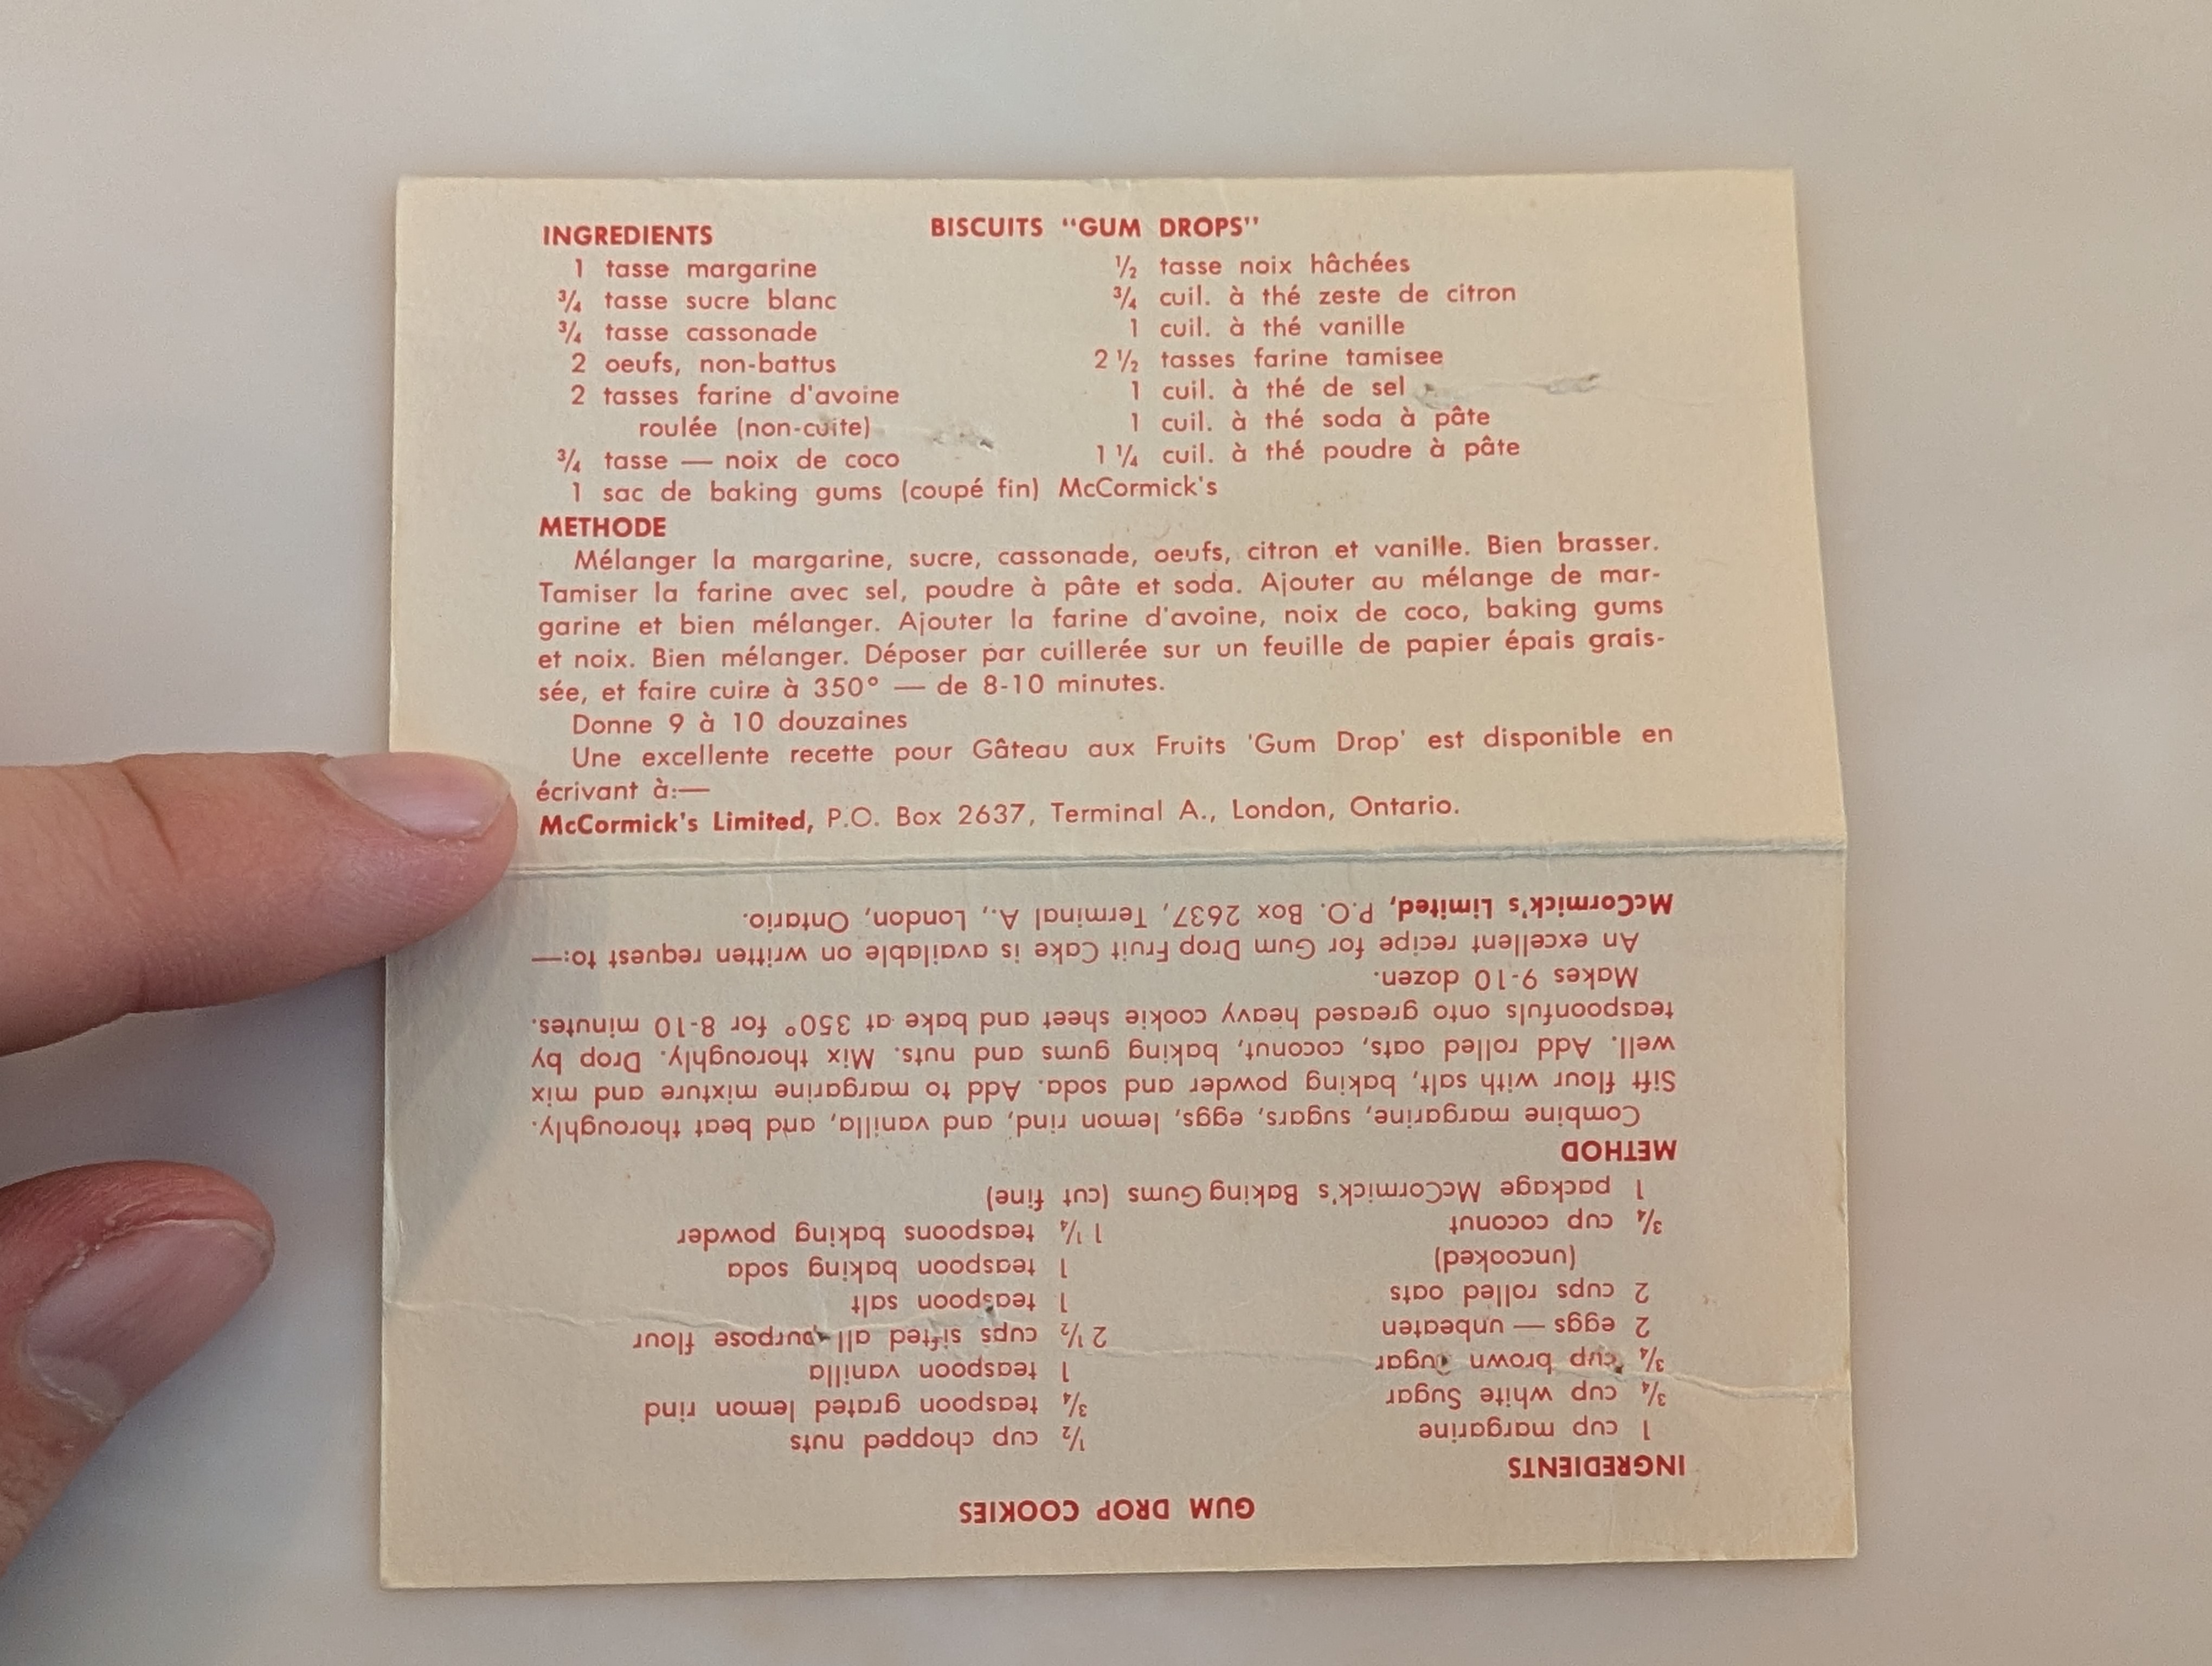 BISCUITS “GUM DROPS”
INGREDIENTS
1 tasse margarine
¾ tasse sucre blanc
¾ tasse cassonade
2 oeufs, non-battus
2 tasses farine d'avoine
roulée (non-cuite)
¾ tasse — noix de coco
½ tasse noix hâchées
¾ cuil. à thé zeste de citron
1 cuil. à thé vanille
2 ½ tasses farine tamisee
1 cuil. à thé de sel
1 cuil. à thé soda à pâte
1 ¼ cuil. à thé poudre à pâte
1 sac de baking gums (coupé fin) McCormick's
METHODE
Mélanger la margarine, sucre, cassonade, oeufs, citron et vanille. Bien brasser.
Tamiser la farine avec sel, poudre à pâte et soda. Ajouter au mélange de mar-
garine et bien mélanger. Ajouter la farine d'avoine, noix de coco, baking gums
et noix. Bien mélanger. Déposer par cuillerée sur un feuille de papier épais grais-
sée, et faire cuire à 350° — de 8-10 minutes.
Donne 9 à 10 douzaines
Une excellente recette pour Gâteau aux Fruits 'Gum Drop' est disponible en
écrivant à:—
McCormick's Limited, P.O. Box 2637, Terminal A., London, Ontario.
GUM DROP COOKIES
INGREDIENTS
1 cup margarine
¾ cup white Sugar
¾ cup brown sugar
2 eggs — unbeaten
2 cups rolled oats
(uncooked)
¾ cup coconut
½ cup chopped nuts
¾ teaspoon grated lemon rind
1 teaspoon vanilla
2 ½ cups sifted all purpose flour
1 teaspoon salt
1 teaspoon baking soda
1 ¼ teaspoons baking powder
1 package McCormick's Baking Gums (cut fine)
METHOD
Combine margarine, sugars, eggs, lemon rind, and vanilla, and beat thoroughly.
Sift flour with salt, baking powder and soda. Add to margarine mixture and mix
well. Add rolled oats, coconut, baking gums and nuts. Mix thoroughly. Drop by
teaspoonfuls onto greased heavy cookie sheet and bake at 350° for 8-10 minutes.
Makes 9-10 dozen.
An excellent recipe for Gum Drop Fruit Cake is available on written request to:—
McCormick's Limited, P.O. Box 2637, Terminal A., London, Ontario.